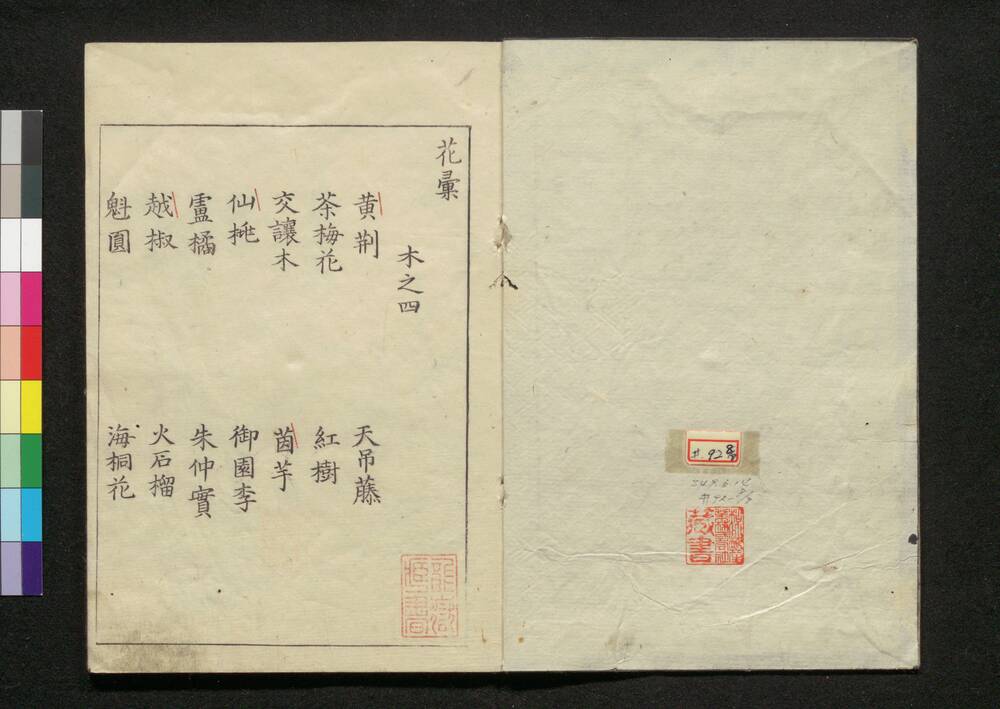 花彙
木之四
黄荆
天吊藤
茶梅花
紅樹
交讓木
茵芋
仙㭠
御園李
盧橘
朱仲實
越椒
火石榴
魁圓
海桐花
井.92
藏書